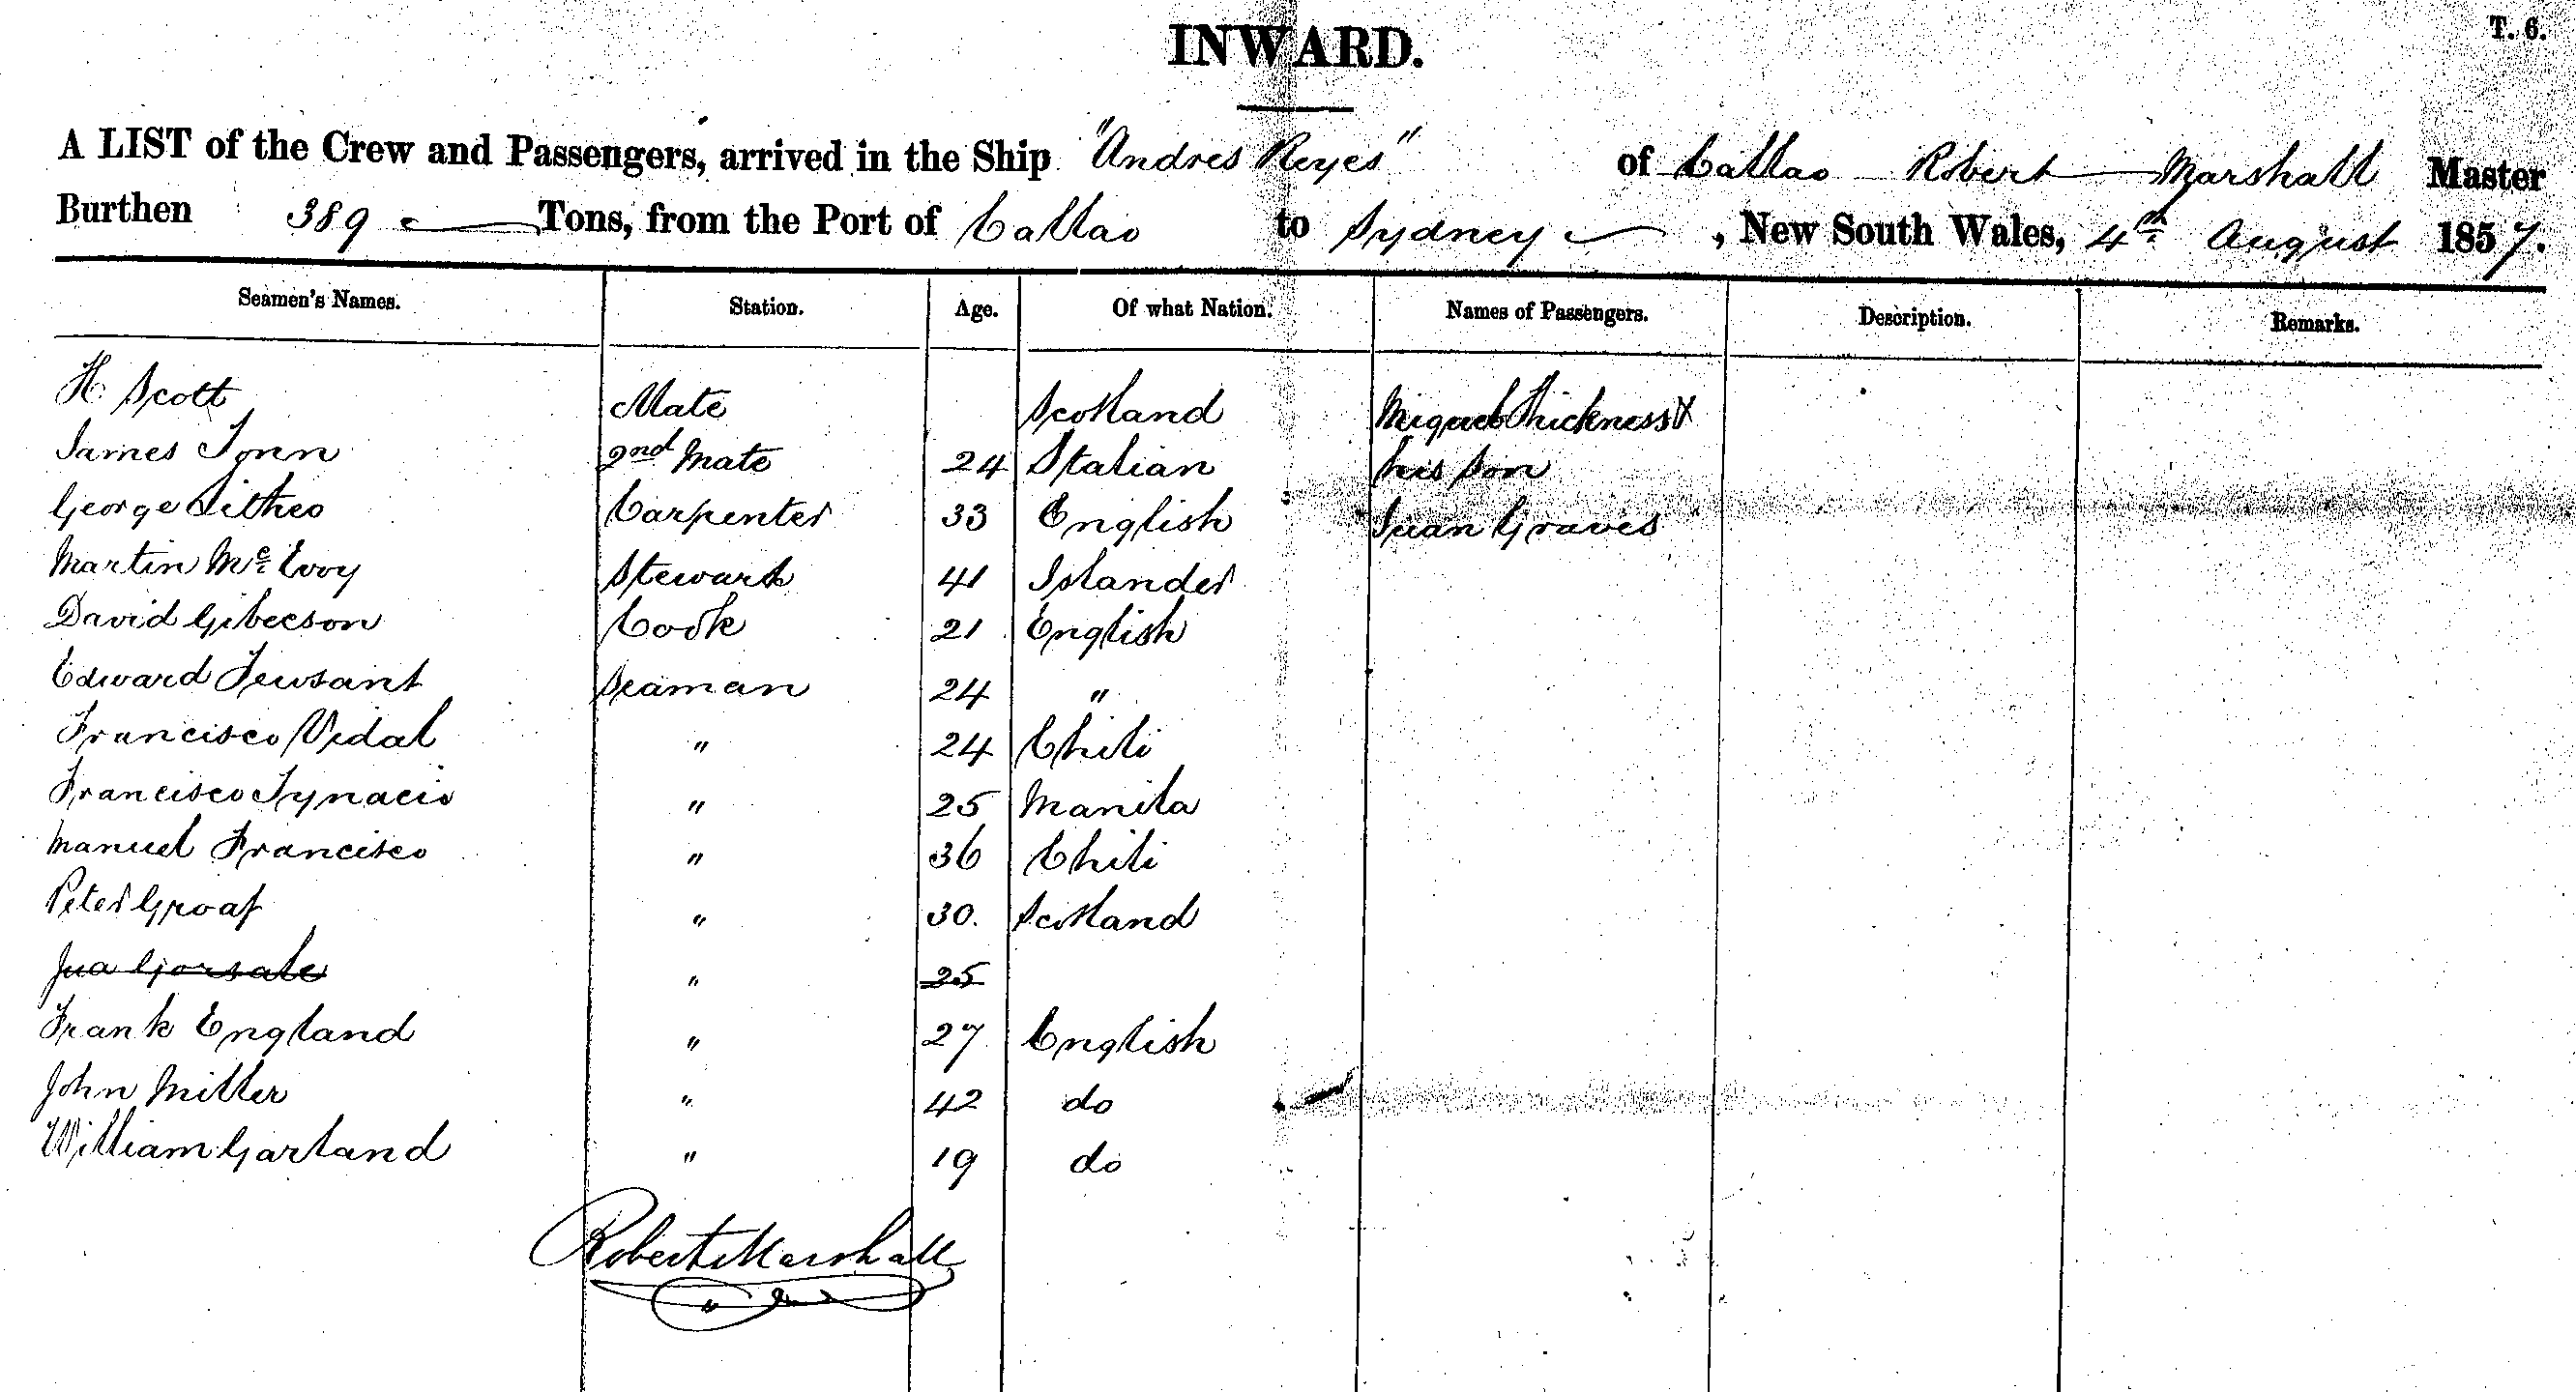 T. 6.
INWARD.
A LIST of the Crew and Passengers, arrived in the Ship "Andres Reyes" of Callao Robert Marshall Master
Burthen 389 Tons, from the Port of Callao to Sydney, New South Wales, 4th August 1857.
Seamen's Names. Station. Age. Of what Nation. Names of Passengers. Description. Remarks.
H Scott Mate Scotland Miguel Thickness &
James Tonn 2nd Mate 24 Italian his son
George Carpenter 33 English Juan Graves
Martin Mc Evoy Steward 41 Islander
David Gibecson Cook 21 English
Edward Seaman 24 "
Francisco Vidal " 24 Chili
Francisco Ignacio " 25 Manila
Manuel Francisco " 36 Chili
Peter Groaf " 30. Scotland
Jua Gorsale " 25
Frank England " 27 English
John Miller " 42 do
William Garland " 19 do
Robert Marshall